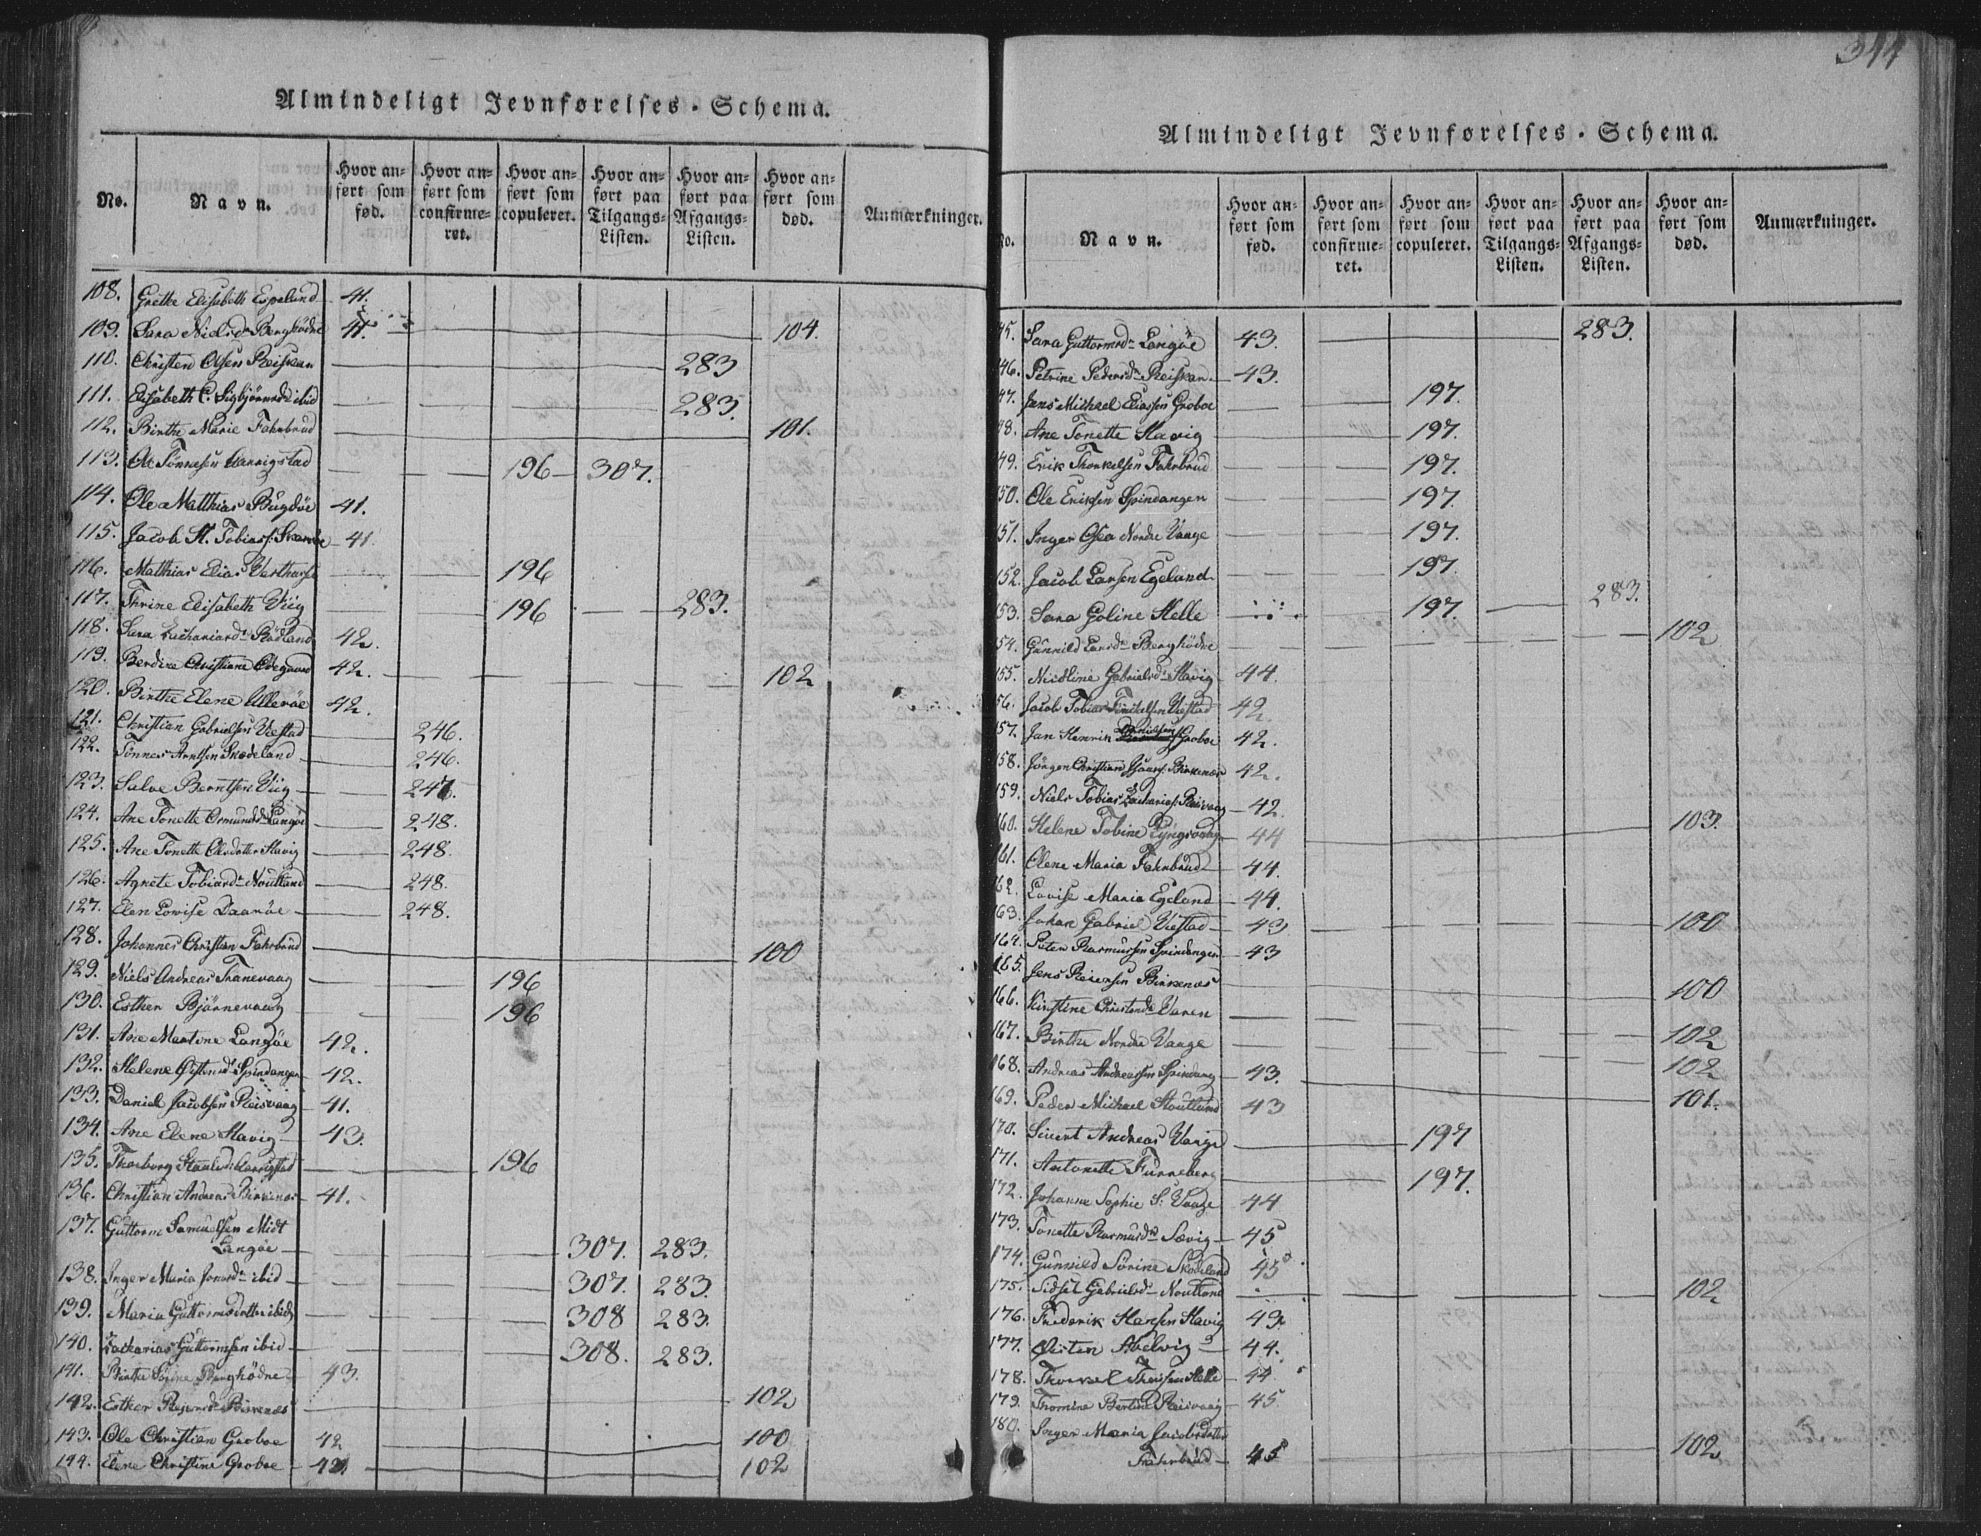 344
Almindeligt Jevnførelses-Schema.
No. Navn. Hvor anført som fød. Hvor anført som confirmeret. Hvor anført som copuleret. Hvor anført paa Tilgangs-Listen. Hvor anført paa Afgangs-Listen. Hvor anført som død. Anmærkninger.
108. Grethe Elisabeth Espelund 41.
109. Sara Nielsd. Berghødne 41. 104.
110. Christen Olsen Reiskan 283
111. Elisabeth C. Sigbjörnsd. ibid 283.
112. Birthe Marie Fahrbrud 101.
113. Ole Tönnesen 196 307.
114. Ole Matthias Bugdöe 41.
115. Jacob H. Tobiass. 41
116. Matthias Elias 196
117. Thrine Elisabeth Viig 196 283.
118. Sara Zachariasd. Rödland 42.
119. Berdine Christiane Ödegaard 42. 102
120. Birthe Elene Ulleröe 42.
121. Christian Gabrielsen Viestad 246.
122. Tönnes Arntsen Skodeland 246.
123. Salve Berntsen Viig 247.
124. Ane Tonette Ormundsd. Langöe 248.
125. Ane Tonette Olsdatter Havig 248.
126. Agnete Tobiasd. Noutland 248.
127. Elen Lovise Daaröe 248.
128. Johannes Christian Fahrbrud 100
129. Niels Andreas Tranevaag 196
130. Esther Bjørnevaag 196
131. Ane Martine Langöe 42.
132. Helene Spindangen 42.
133. Daniel Jacobsen Reisvaag 41.
134. Ane Elene Havig 43.
135. Thorborg 196
136. Christian Andreas Birkenæs 41.
137. Guttorm Samuelsen Midt
Langöe 307. 283.
138. Inger Maria Jonasd. ibid 307. 283.
139. Maria Guttormsdatter ibid 308 283.
140. Zacharias Guttormsen ibid 308. 283.
141. Birthe Sophie Berghödne 43.
142. Esther Reiersd. Birkenæs 102
143. Ole Christian Groboe 42 100
144. Elene Christine Groboe 42 102
Almindeligt Jevnførelses-Schema.
No. Navn. Hvor anført som fød. Hvor anført som confirmeret. Hvor anført som copuleret. Hvor anført paa Tilgangs-Listen. Hvor anført paa Afgangs-Listen. Hvor anført som død. Anmærkninger.
45. Sara Guttormsd. Langöe 43. 283.
46. Petrine Pedersd. Reiskan 43.
47. Jens Michael Eliassen Groboe 197.
48. Ane Tonette Havig 197.
49. Erik Thorkelsen Fahrbrud 197.
50. Ole Eriksen Spindangen 197.
51. Inger Osea Nordre Vaage 197.
152. Jacob Larsen Egeland 197.
53. Sara Goline Helle 197. 283.
54. Gunnild Larsd. Berghödne 102
55. Nicoline Gabrielsd. Havig 44.
56. Jacob Tobias Viestad 42.
57. Jan Henrik Groboe 42.
58. Jörgen Christian Birkenæs 42.
159. Niels Tobias Zacharias. Reisvaag 42.
60. Helene Tobine 44 103.
61. Elene Maria Fahrbrud 44.
62. Lovise Maria Egeland 44.
63. Johan Gabriel Viestad 43 100
164. Peter Rasmussen Spindangen 43
165. Jens Reiersen Birkenæs 100
166. Kirstine Christensd. Varen
167. Birthe Nordre Vaage 102
168. Andreas Andreassen Spindang 43. 102
169. Peder Michael Noutland 43 101.
170. Sivert Andreas Vaage 197
171. Antonette Furneberg 197.
172. Johanne Sophie S. Vaage 44
173. Tonette Rasmusd. Sævig 45
174. Gunnild Sörine Skodeland 45
175. Sidsel Gabrielsd. Noutland 102
176. Frederik Hansen Havig 43
177. Östen Abelvig 44.
178. Thorkel Theissen Helle 44
179. Thomine Bertine Reisvaag 45
180. Inger Maria Jacobsdatter
45 102